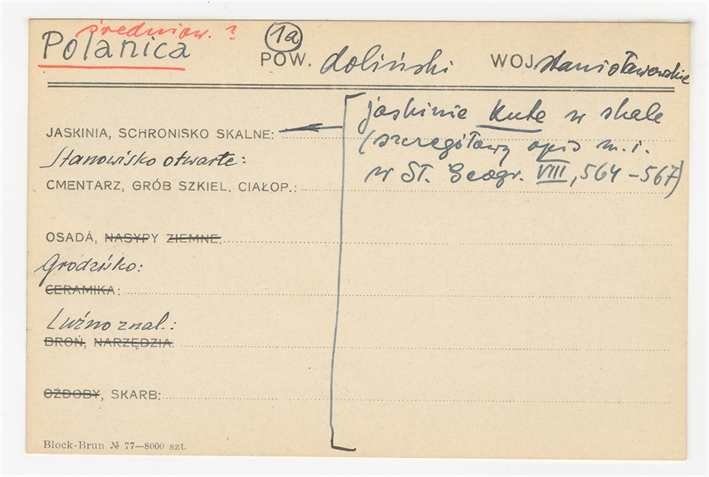 średniow. ?
Polanica
1a
POW. doliński WOJ. stanisławowskie
JASKINIA, SCHRONISKO SKALNE:
jaskinie kute w skale
(szczegółowy opis m. i.
w Sł. Geogr. VIII, 564-567)
Stanowisko otwarte:
CMENTARZ, GRÓB SZKIEL. CIAŁOP.:
OSADA, NASYPY ZIEMNE:
Grodzisko:
CERAMIKA:
Luźno znal.:
BROŃ, NARZĘDZIA
OZDOBY, SKARB:
Block-Brun № 77—8000 szt.